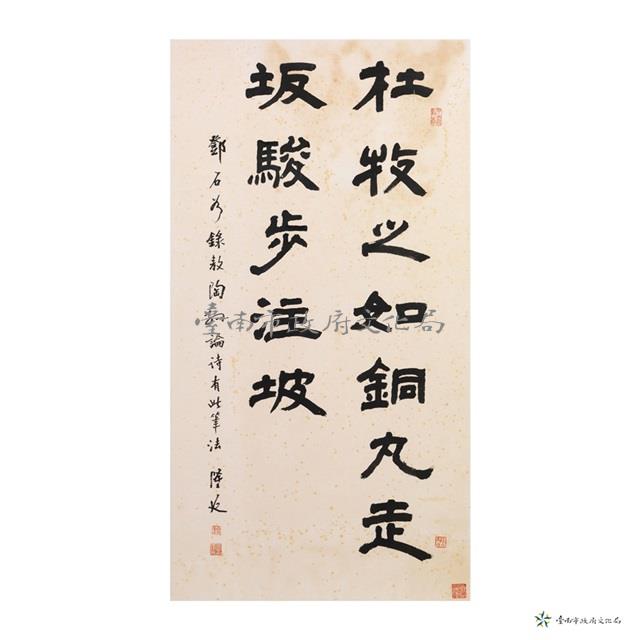 杜牧之如銅丸走
坂駿步注坡
鄧石如錄敖陶孫論詩有此筆法 陸放
臺南市政府文化局
臺南市政府文化局